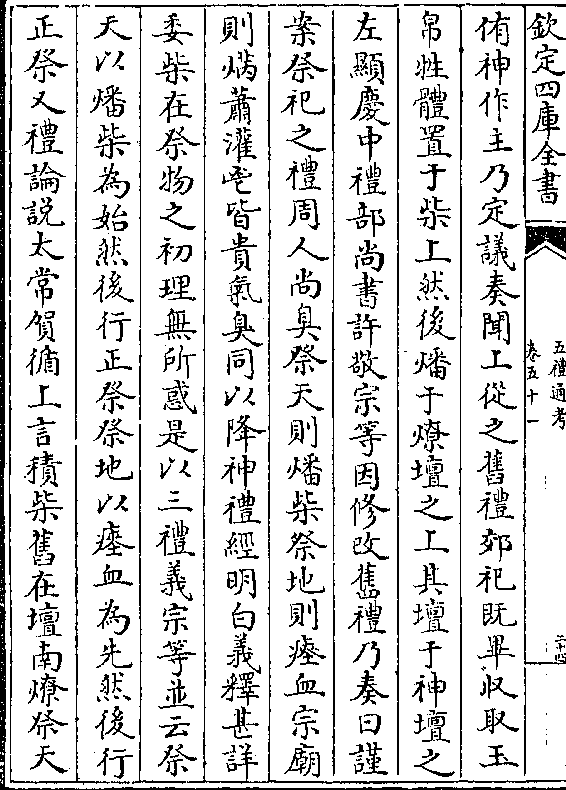 欽定四庫全書
五禮通考
卷五十一
二十四
侑神作主乃定議奏聞上從之舊禮郊祀既畢收取玉
帛牲體置于柴上然後燔于燎壇之上其壇于神壇之
左顯慶中禮部尚書許敬宗等因修改舊禮乃奏曰謹
案祭祀之禮周人尚臭祭天則燔柴祭地則瘞血宗廟
則焫蕭灌鬯皆貴氣臭同以降神禮經明白義釋甚詳
委柴在祭物之初理無所惑是以三禮義宗等並云祭
天以燔柴為始然後行正祭祭地以瘞血為先然後行
正祭又禮論説太常賀循上言積柴舊在壇南燎祭天